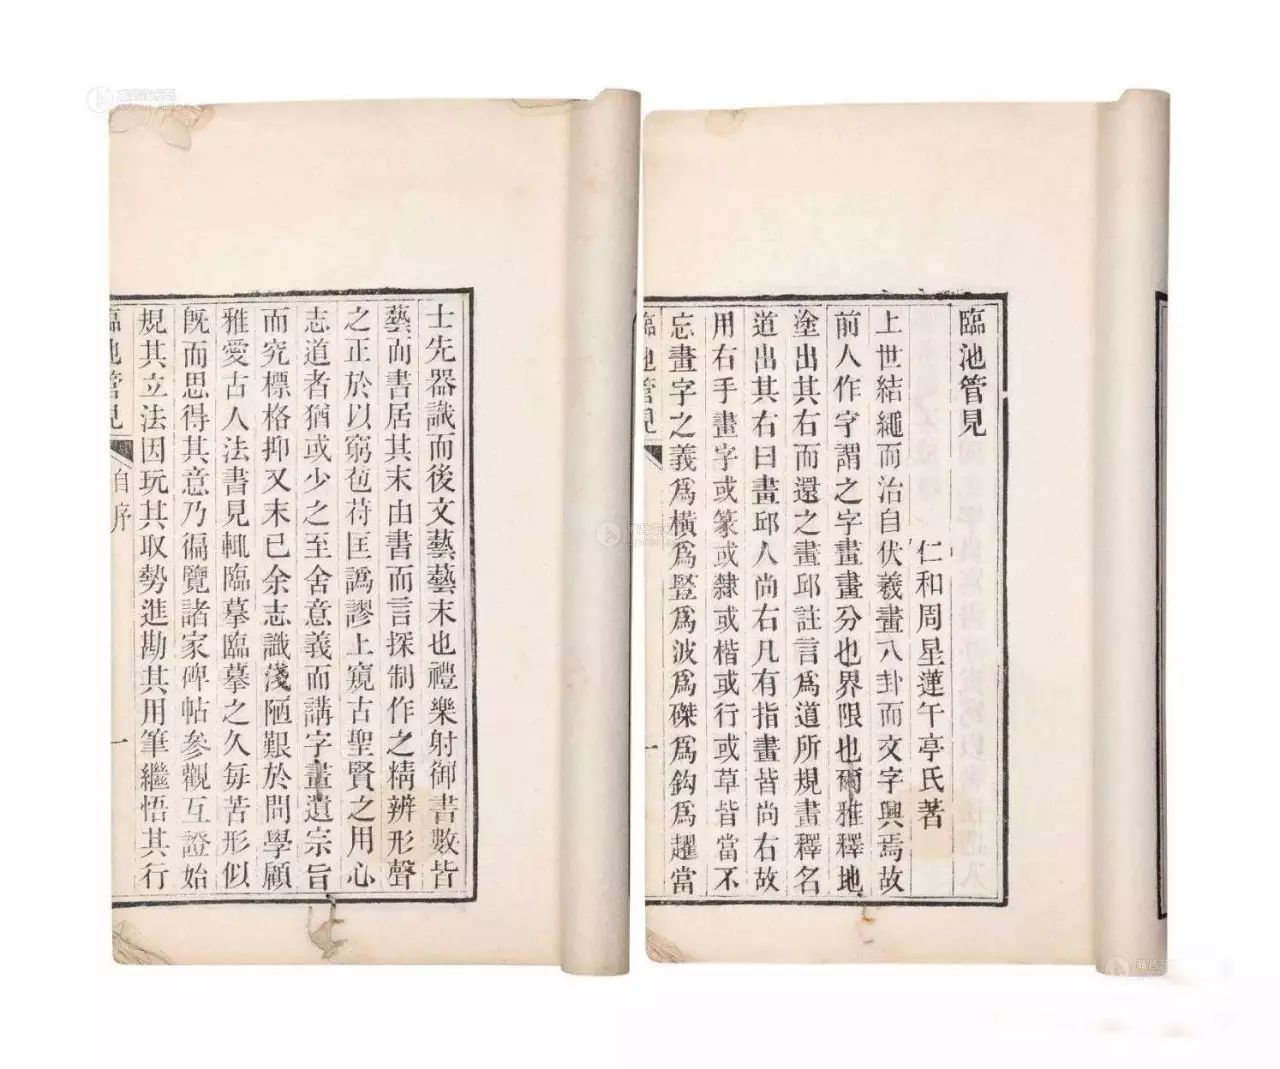 臨池管見
仁和周星蓮午亭氏著
上世結繩而治自伏羲畫八卦而文字興焉故
前人作字謂之字畫畫分也界限也爾雅釋地
塗出其右而還之畫邱註言爲道所規畫釋名
道出其右曰畫邱人尚右凡有指畫皆尚右故
用右手畫字或篆或隸或楷或行或草皆當不
忘畫字之義爲橫爲豎爲波爲磔爲鈎爲趯當
臨池管見 一
士先器識而後文藝藝末也禮樂射御書數皆
藝而書居其末由書而言探制作之精辨形聲
之正於以窮苞苻匡譌謬上窺古聖賢之用心
志道者猶或少之至舍意義而講字畫遺宗旨
而究標格抑又末已余志識淺陋艱於問學顧
雅愛古人法書見輒臨摹臨摹之久每苦形似
旣而思得其意乃徧覽諸家碑帖參觀互證始
規其立法因玩其取勢進勘其用筆繼悟其行
臨池管見 自序 一